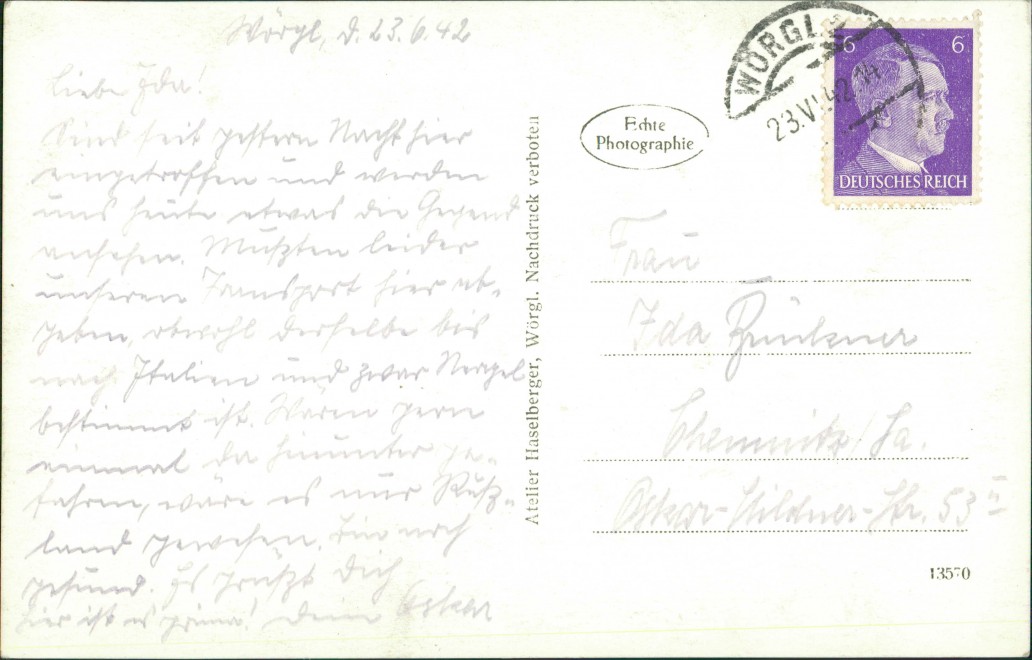 Wörgl, d. 23.6.42
Liebe Ida!
Sind seit gestern Nacht hier
eingetroffen und werden
uns heute etwas die Gegend
ansehen. Mußten leider
unseren Transport hier ab-
geben, obwohl derselbe bis
nach Italien und zwar Neapel
bestimmt ist. Wären gern
einmal da hinunter ge-
fahren, wäre es nur Ruß-
land gewesen. Bin noch
gesund. Es grüßt Dich
hier ist es prima! Dein Oskar
Atelier Haselberger, Wörgl. Nachdruck verboten
Echte
Photographie
WÖRGL
23.VI.42
6 6
DEUTSCHES REICH
Frau
Ida
Chemnitz/Sa.
Str. 53
13570